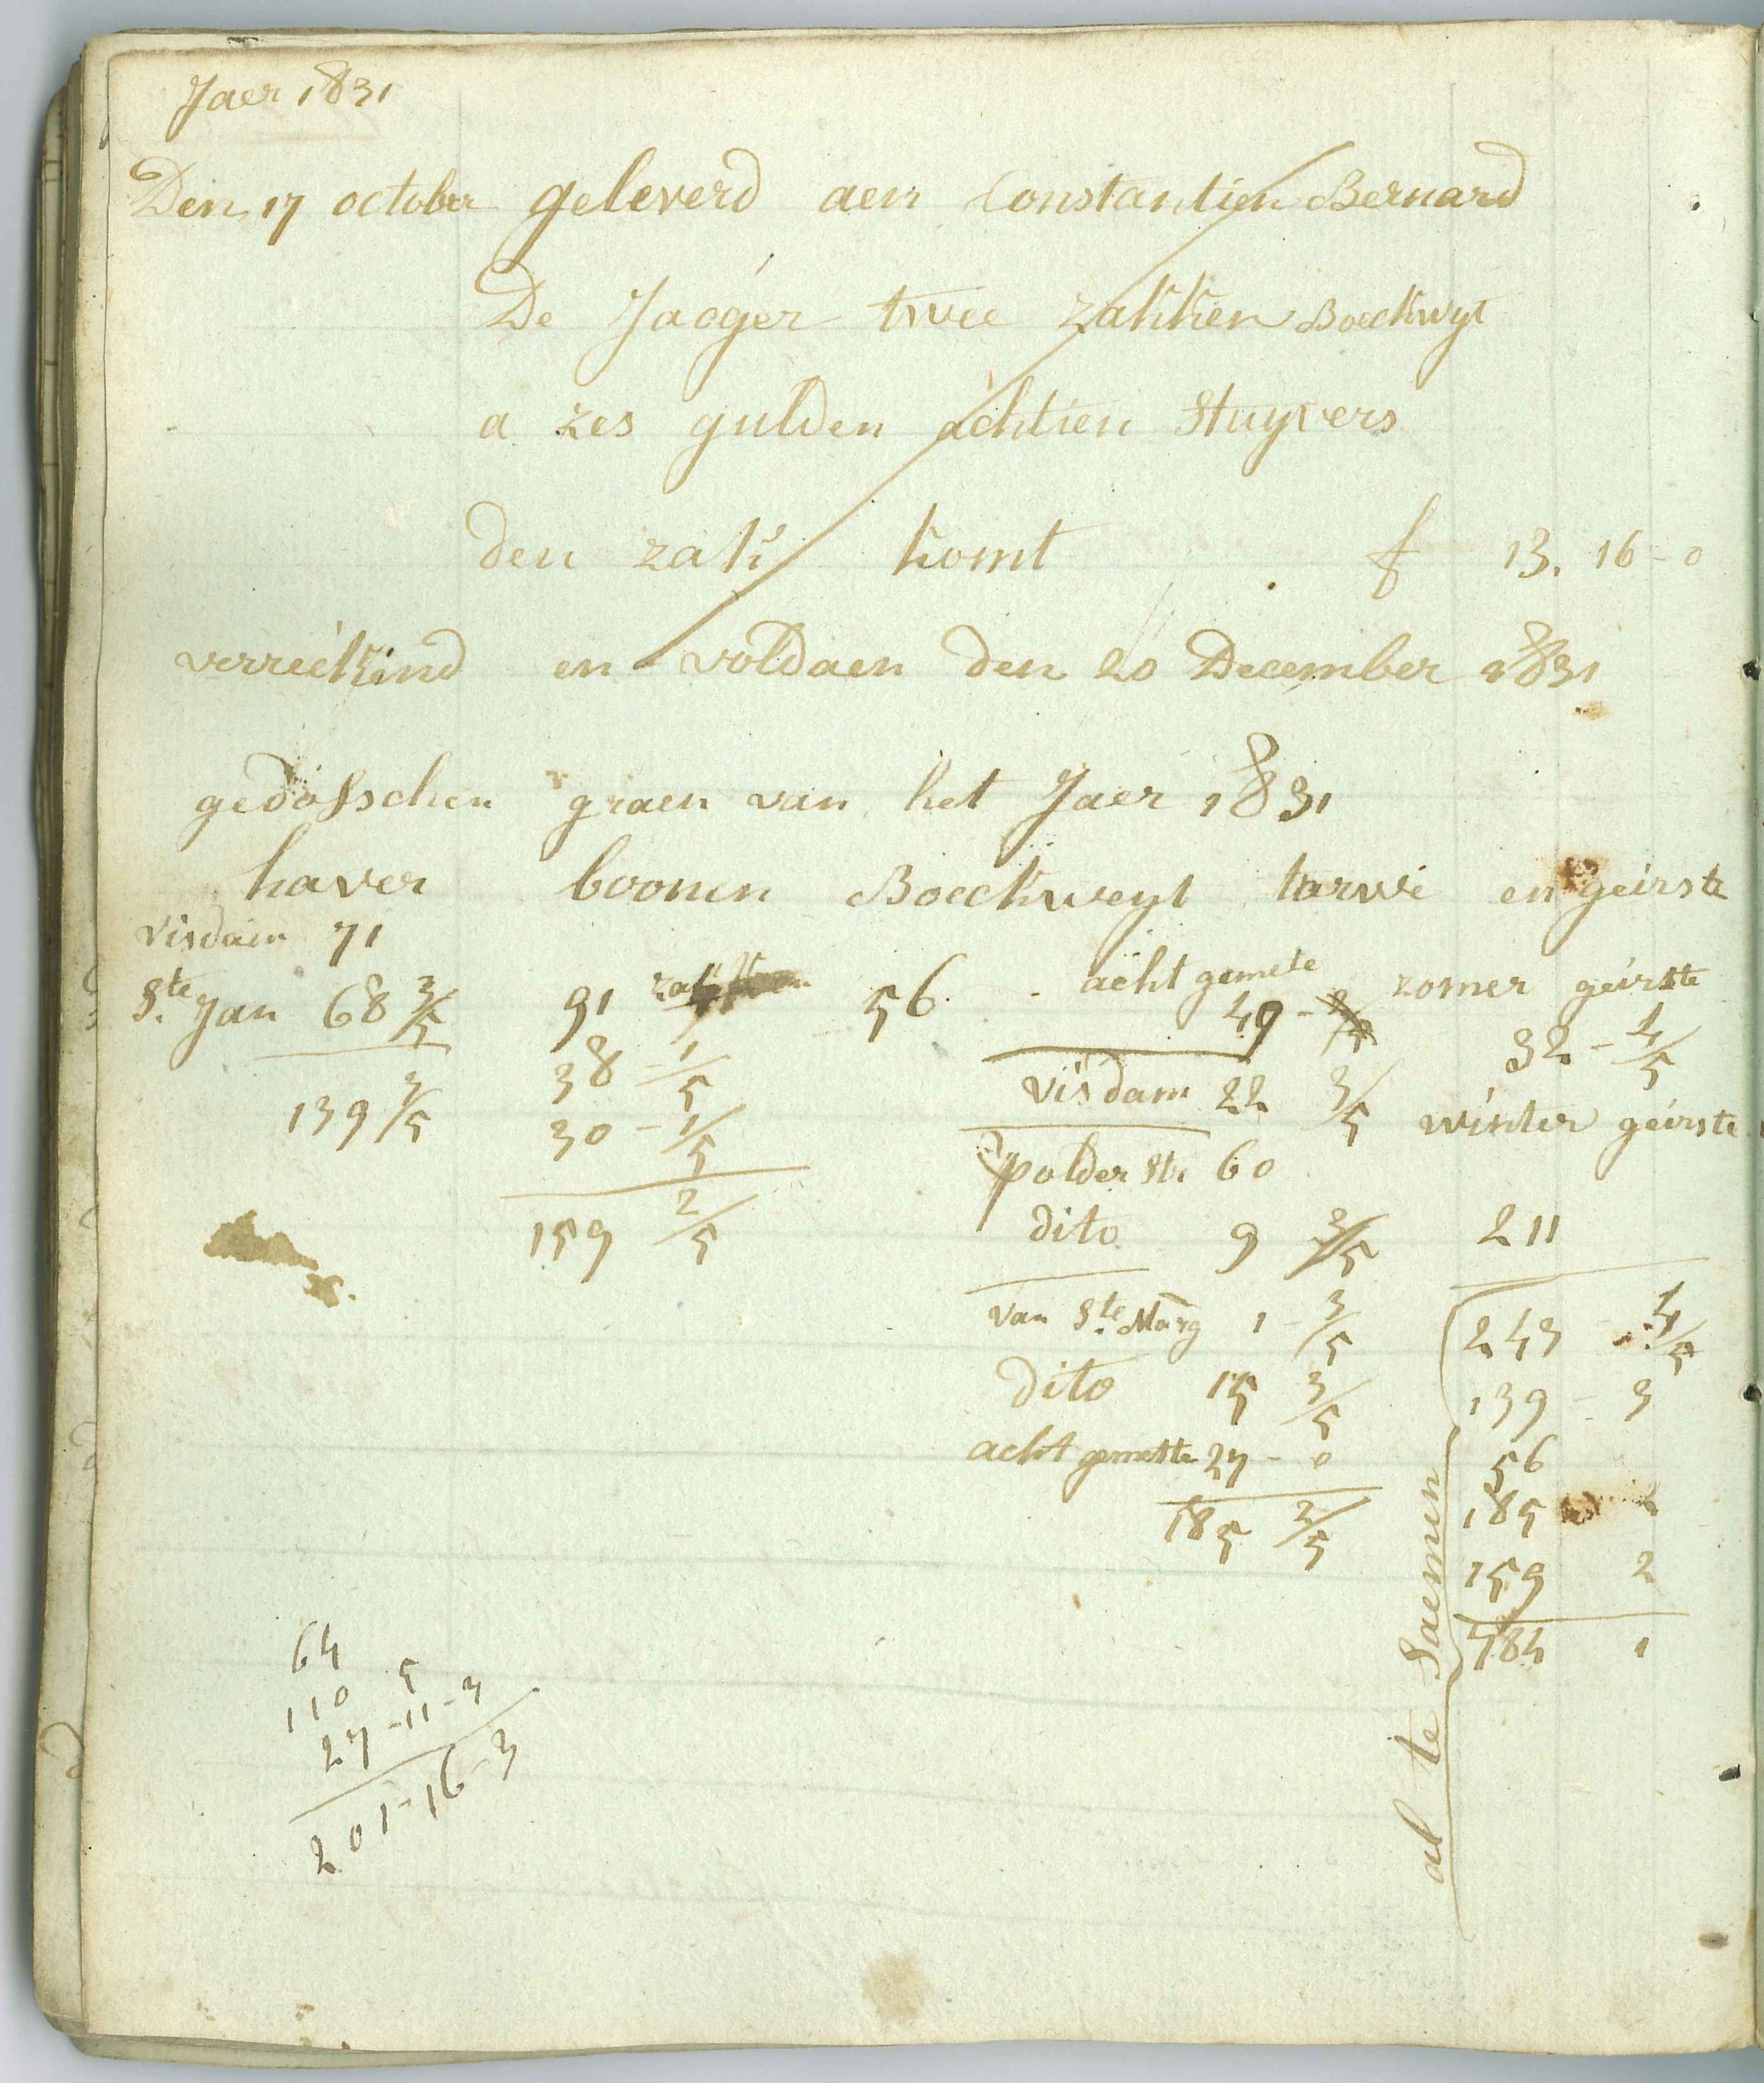 Jaer 1831
Den 17 october geleverd aen Constantien Bernard
De Jaeger twee zakken Boeckwyt
a zes gulden achtien Stuyvers
den zak komt f 13. 16 - 0
verreikind en voldaen den 20 December 1831
gedosschen graen van het Jaer 1831
haver boonen Boeckweyt tarwe en geirste
visdam 71
Ste Jan 68 3/5 91 56 acht gemete 49 zomer geirste
139 3/5 38 - 1/5 visdam 22 3/5 32 - 4/5
30 - 1/5 winter geirste
159 2/5 polder St. 60
dito 9 3/5 211
van Ste Marg 1 - 3/5 243 - 4/5
dito 15 3/5 139 - 3
acht gemette 27 - 0 56
185 2/5 185 2
159 2
784 1
al te Saemen
64
110 5
27 - 11 - 3
201 - 16 - 3